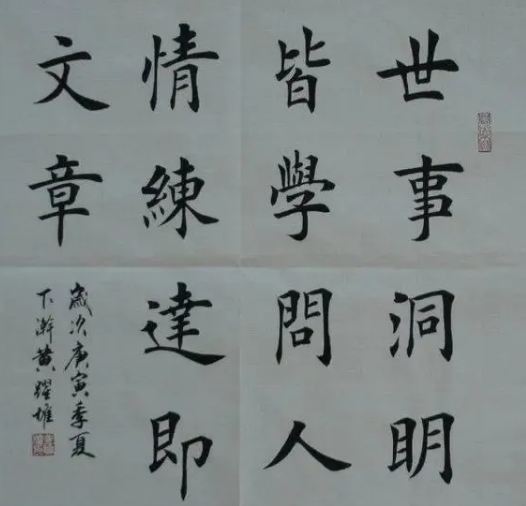 世事洞明
皆學問人
情練達即
文章
歲次庚寅季夏
下澣黄躍雄